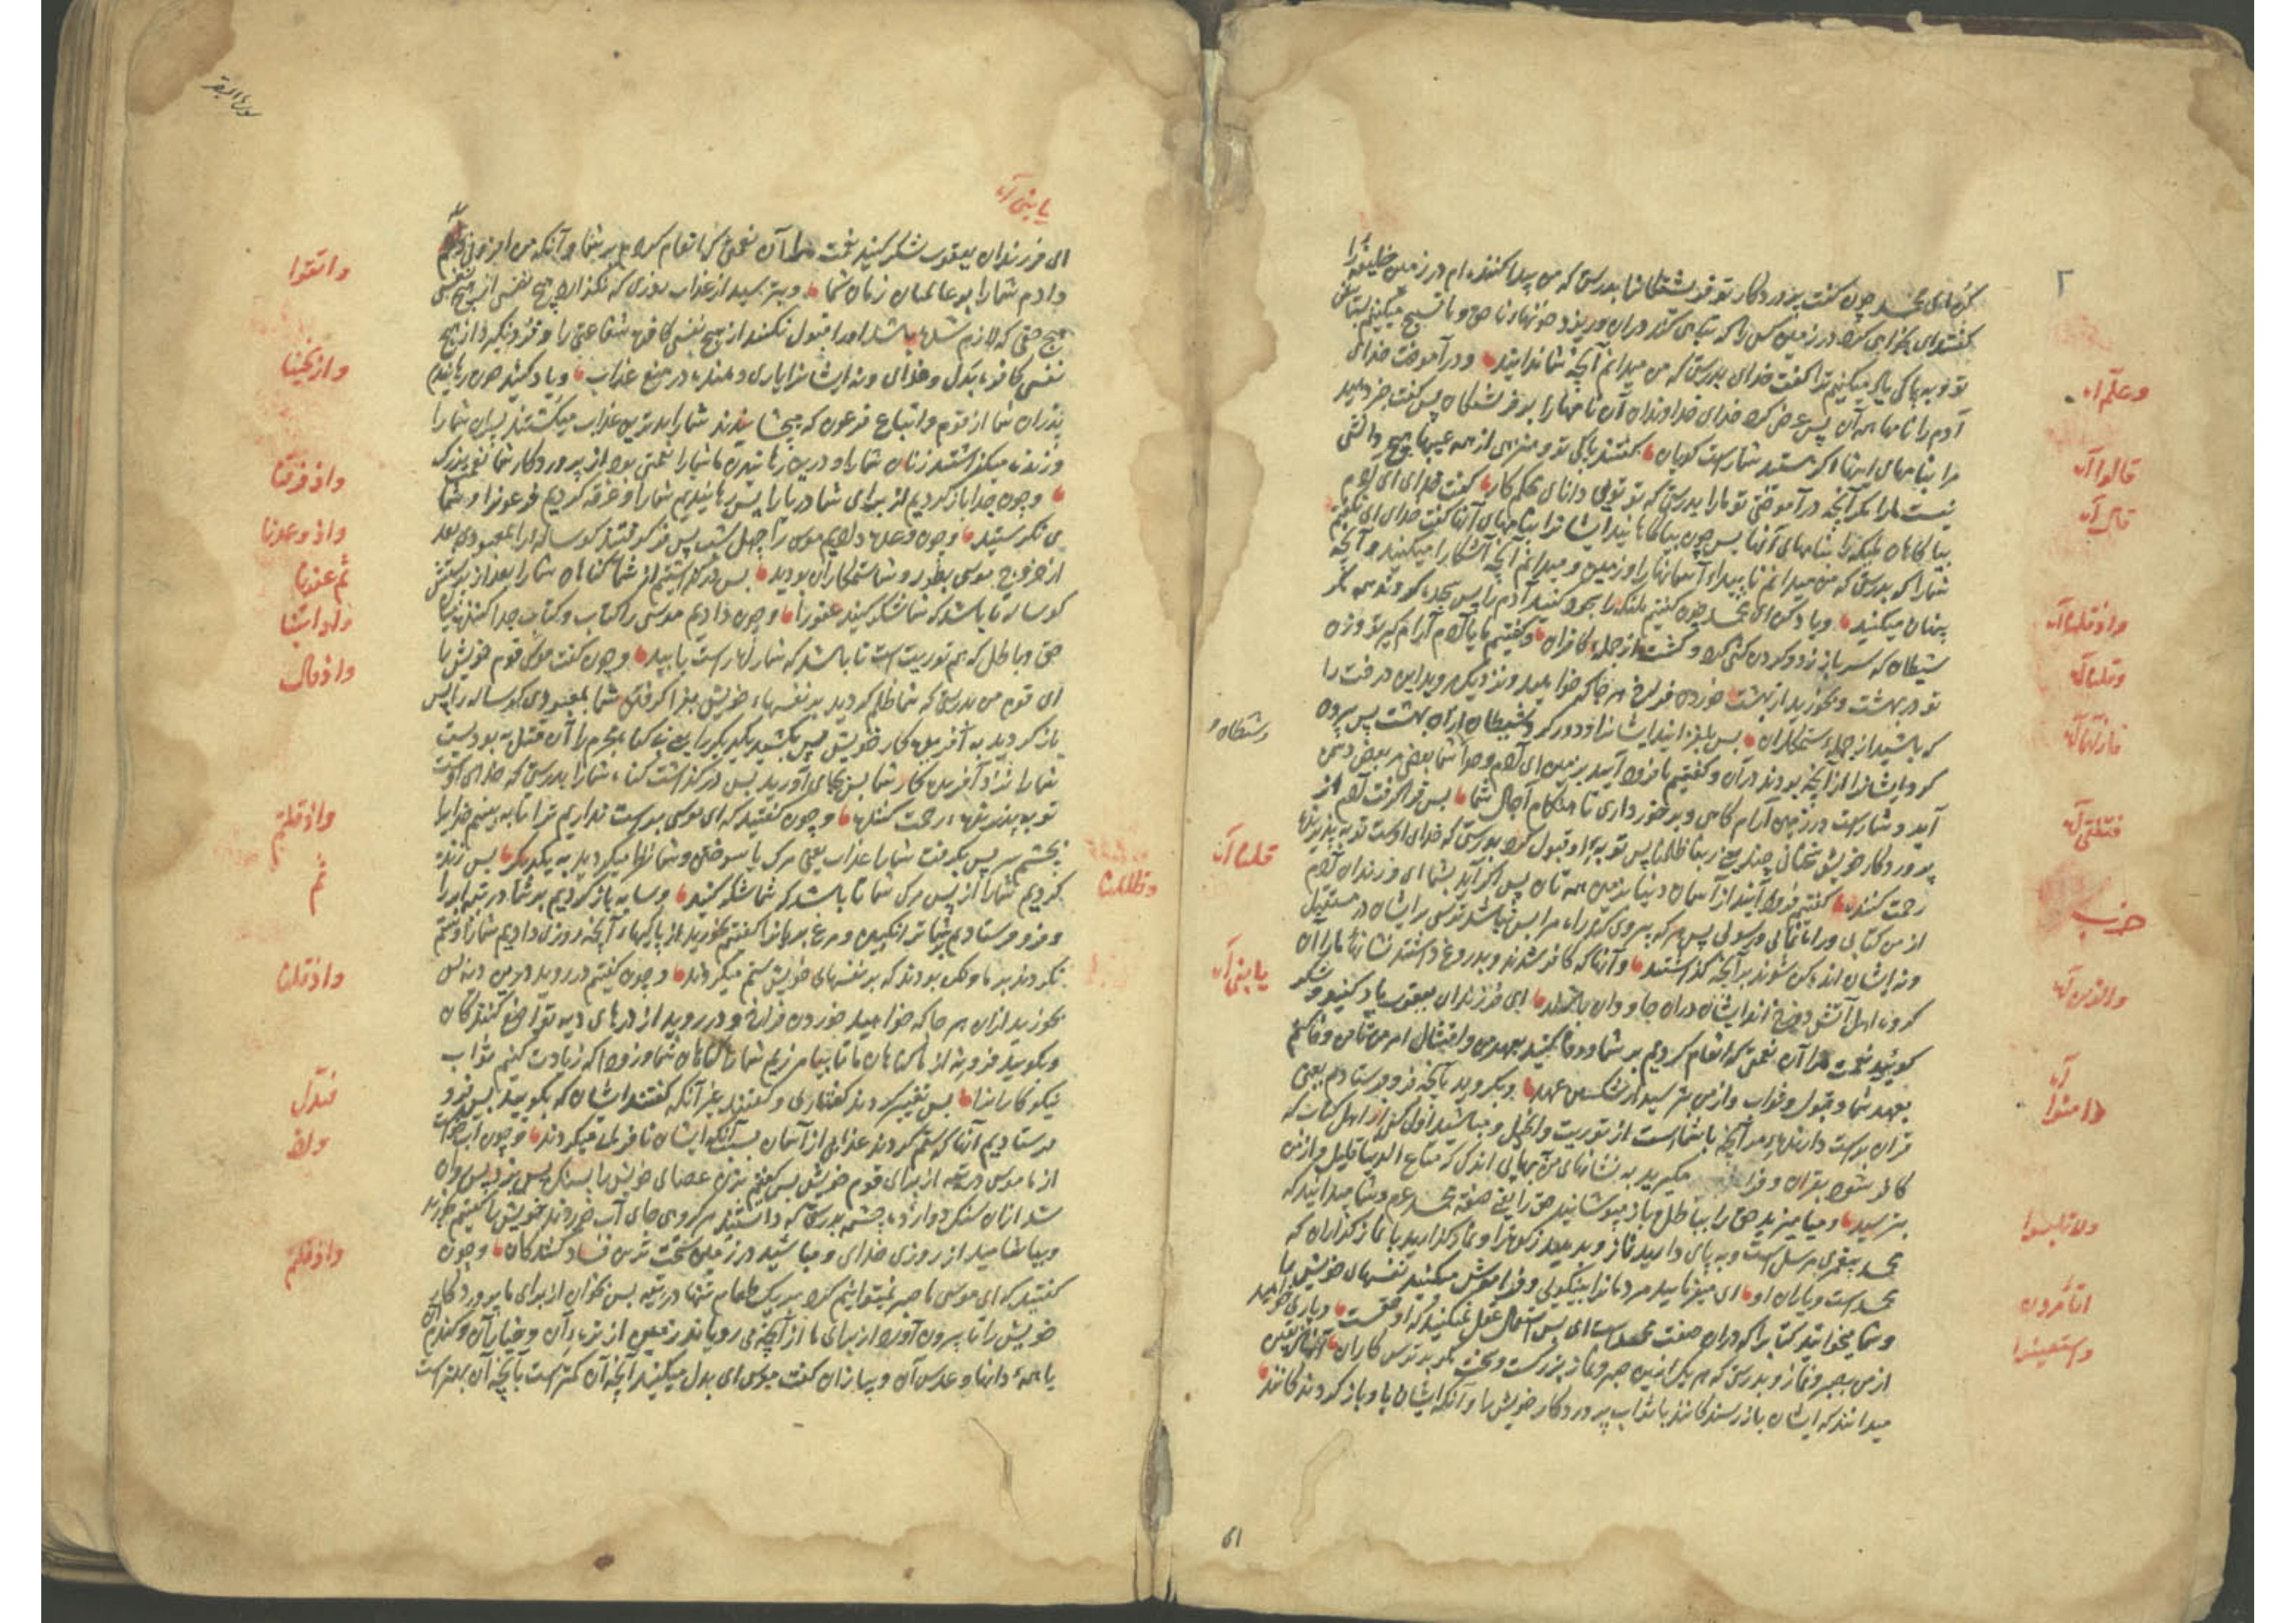 ۲
کن ای محمد چون گفت پروردگار تو فرشتگانرا بدرستی که من پیدا کننده ام در زمین خلیفه را
گفتند ای بخواهی کرد در زمین کسی را که تباهی کند در آن و ریزد خونها بناحق و ما تسبیح میکنیم بستایش
تو و به پاکی یاد میکنیم ترا گفت خدای بدرستی که من میدانم آنچه شما ندانید و در آموخت خدای
وعلّم آیه
آدم را نامها همه آن پس عرض کرد خدای خداوندان آن نامها را بر فرشتگان پس گفت خبر دهید
مرا بنامهای اینها اگر هستید شما راست گویان گفتند پاکی تو و منزهی از همه عیبها هیچ دانشی
قالوا آیه
نیست ما را مگر آنچه در آموختی تو ما را بدرستی که تو تویی دانای محکم کار گفت خدای ای آدم
قال آیه
بیاگاهان ملیکه را بنامهای آنها پس چون بیاگاهانید ایشانرا بنامهای آنها گفت خدای ای نگفتم
شما را که بدرستی که من میدانم ناپیداء آسمانها را و زمین و میدانم آنچه آشکارا میکنید و آنچه
پنهان میکنید و یاد کن ای محمد چون گفتیم ملئکه را سجود کنید آدم را پس سجده کردند همه مگر
واذ قلنا آیه
شیطان که سر باز زد و گردن کشی کرد و گشت از جمله کافران و گفتیم ما یا آدم آرام گیر تو و زن
وقلنا آیه
تو در بهشت و بخورید از بهشت خوردن فراخ هر جا که خواهید و نزدیک مروید این درخت را
که باشید از جمله ستمکاران پس بلغزانید ایشانرا و دور کرد شیطان از آن بهشت پس بیرون
فازلهما آیه
کرد ایشانرا از آنچه بودند در آن و گفتیم ما فرود آیید بزمین ای آدم و حوا شما بعضی مر بعض دشمن
آید و شما راست در زمین آرام گاهی و برخورداری تا هنگام آجال شما پس فرا گرفت آدم از
فتلقی آیه
پروردگار خویش سخنانی چند یعنی ربنا ظلمنا پس توبه او قبول کرد بدرستی که خدای اوست توبه پذیرنده
رحمت کننده گفتیم فرود آیید از آسمان دنیا بزمین همه تان پس اگر آید بشما ای فرزندان آدم
قلنا آیه
حزب
از من کتابی و راه نمائی و رسولی پس هر که پیروی کند راه مرا پس نباشد ترسی بر ایشان در مستقبل
ونه ایشان اندوهگن شوند بر آنچه گذاشتند و آنها که کافر شدند و بدروغ داشتند نشانهاء ما را آن
والذین آیه
گروه اهل آتش دوزخ اند ایشان در آن جاودان باشند ای فرزندان یعقوب یاد کنید و شکر
یا بنی آیه
گوئید نعمت مرا آن نعمتی که انعام کردیم بر شما و وفا کنید بعهد من و امتثال امر من تا من وفا کنم
بعهد شما و قبول و ثواب و از من بترسید از شکستن عهد و بگروید بآنچه فرو فرستادم یعنی
وامنوا آیه
قران راست دارنده مر آنچه با شماست از توریت و انجیل و مباشید اول کسی از اهل کتاب که
کافر شود بقران و فرا مگیرید به نشانهای من بهایی اندک که متاع الدنیا قلیل و از من
بترسید و میامیزید حق را بباطل و باز مپوشانید حق را یعنی صفت محمد عم و شما میدانید که
ولا تلبسوا
محمد پیغمبر مرسل است و به پای دارید نماز و بدهید زکوة را و نماز گذارید با نماز گذاران که
محمد است و یاران او ای میفرمایید مردمانرا بنیکوئی و فراموش میکنید نفسهای خویش را
اتأمرون
و شما میخوانید کتاب را که در آن صفت محمد است ای پس استعمال عقل نمیکنید که او حقست و یاری خواهید
واستعینوا
از من بصبر و نماز و بدرستی که هر یک ازین صبر و نماز بزرگست و سخت مگر بر ترس کاران آنها که یقین
میدانند که ایشان باز رسندگانند با ثواب پروردگار خویش را و آنکه ایشان باو باز گردندگانند
61
سورة البقر
یا بنی آیه
ای فرزندان یعقوب شکر کنید نعمت مرا آن نعمتی که انعام کردم بر شما و آنکه من افزونی
دادم شما را بر عالمیان زمان شما و بترسید از عذاب روزی که نگذارد هیچ نفسی از هیچ نفسی
واتقوا
هیچ حقی که لازم شده باشد او را و قبول نکنند از هیچ نفسی کافره شفاعتی را و فرو نگیرند از هیچ
نفسی کافره بدل و فدای و نه ایشانرا یاری دهند در منع عذاب و یاد کنید چون رهانیدیم
واذ نجینا
پدران شما از قوم و اتباع فرعون که میچشانیدند شما را بدترین عذاب میکشتند پسران شما را
و زنده میگذاشتند زنان شما را و درین رهانیدن ما شما را نعمتی بود از پروردگار شما نعمت بزرگ
واذ فرقنا
و چون جدا باز کردیم از برای شما دریا را پس رهانیدیم شما را و غرقه کردیم فرعونرا و شما
می نگرستید و چون وعده دادیم موسی را چهل شب پس فرا گرفتید گوساله را بمعبودی بعد
واذ وعدنا
از خروج موسی بطور و شما ستمکاران بودید پس در گذاشتیم از شما گناهان شما را بعد از پرستش
ثم عفونا
گوساله تا باشد که شما شکر کنید عفو را و چون دادیم موسی را کتاب و کتاب جدا کننده میان
واذ اتینا
حق و باطل که هم توریت است تا باشد که شما راه راست یابید و چون گفت موسی قوم خویش را
واذ قال
ای قوم من بدرستی که شما ظلم کردید بر نفسهاء خویش بفرا گرفتن شما بمعبودی گوساله را پس
باز گردید به آفریدگار خویش پس بکشید یکدیگر را یعنی بی گناه مجرم را آن قتل به بودست
شما را نزد آفریدگار شما پس بجای آورید پس در گذاشت گناه شما را بدرستی که خدای اوست
توبه پذیرنده رحمت کننده و چون گفتید که ای موسی براست نداریم ترا تا به بینیم خدا را
واذ قلتم
بچشم سر پس بگرفت شما را عذاب یعنی مرگ یا سوختن و شما نظر میکردید به یکدیگر پس زنده
ثم
کردیم شما را از پس مرگ شما تا باشد که شما شکر کنید و سایه باز کردیم بر شما در تیه ابر را
وظللنا
و فرو فرستادیم بر شما ترانگبین و مرغ بریانرا گفتیم بخورید از پاکیهاء آنچه روزی دادیم شما را و ستم
نکردند بر ما ولکن بودند که بر نفسهای خویش ستم میکردند و چون گفتیم در روید درین دیه پس
واذ قلنا
بخورید ازان هر جا که خواهید خوردن فراخ و در روید از درهای دیه تواضع کنندگان
و بگویید فرو نه از ما گناهان ما تا بیامرزیم شما را گناهان شما و زود که زیادت کنیم ثواب
نیکوکارانرا پس تغییر کردند گفتاری و گفتند بغیر آنکه گفتند ایشان که بگویید پس فرو
فبدّل
فرستادیم آنها که ستم کردند عذابی از آسمان بسبب آنکه ایشان نافرمانی میکردند و چون آب خواست
واذ
از ما موسی در تیه از برای قوم خویش پس گفتیم بزن عصای خویش را بسنگ پس بزد پس روان
شد ازان سنگ دوازده چشمه بدرستی که دانستند هر گروهی جای آب خوردن خویش را گفتیم بخورید
و بیاشامید از روزی خدای و مباشید در زمین سخت ترین فساد کنندگان و چون
واذ قلتم
گفتید که ای موسی ما صبر نمیتوانیم کرد بر یک طعام تنها در تیه پس بخوان از برای ما پروردگار
خویش را تا بیرون آورد از برای ما از آنچه می رویاند زمین از تره آن و خیار آن و گندم آن
یا همۀ دانها و عدس آن و پیاز آن گفت موسی ای بدل میکنید آنچه آن کمترست بآنچه آن بهترست